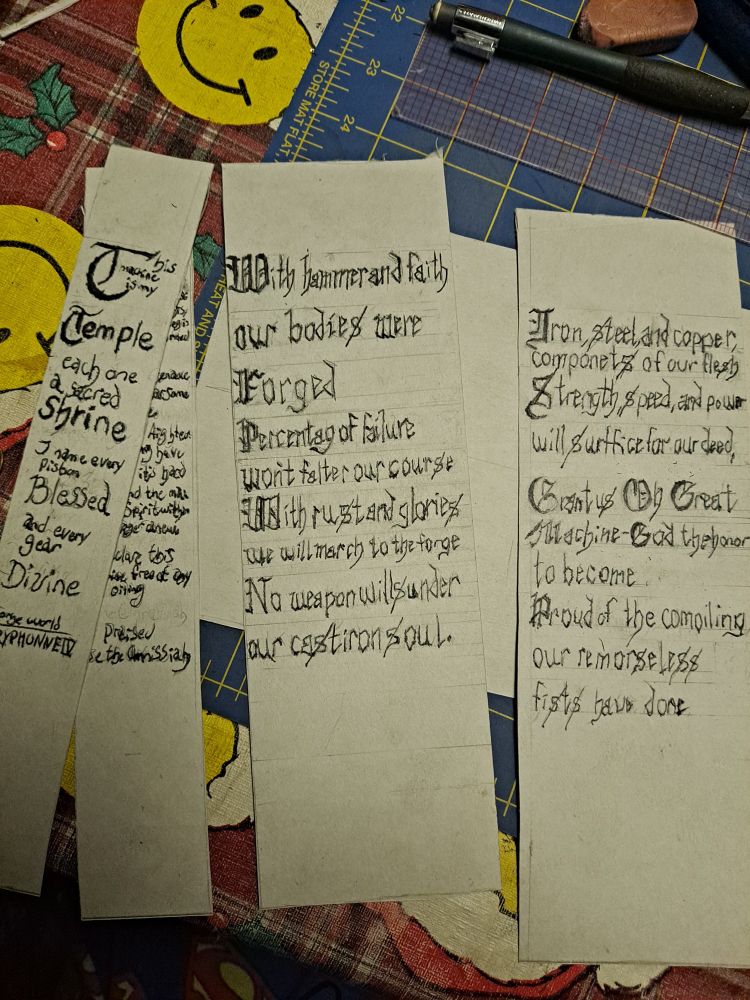 22
23
24
STORE MAT FLAT,
HEAT AND
This
machine
is my
Temple
each one
a sacred
Shrine
I name every
Pisbon
Blessed
and every
gear
Divine
forge world
GRYPHONNE IV
it's hard
and the
Spirit within
this
free of any
Praised
be the Omnissiah
With hammer and faith
our bodies were
Forged
Percentag of failure
won't falter our course
With rust and glories
we will march to the forge
No weapon will sunder
our cast iron soul.
Iron, steel, and copper,
componets of our flesh
Strength, speed, and power
will surffice for our deed,
Grant us Oh Great
Machine-God the honor
to become
Proud of the compiling
our remorseless
fists have done